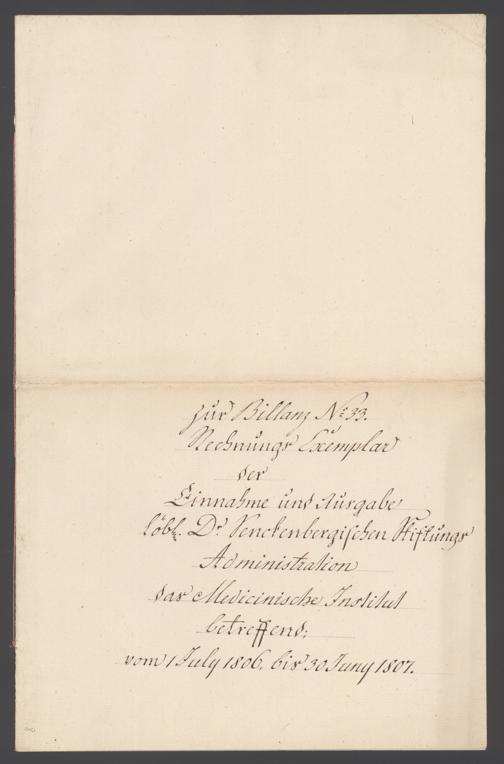 zur Billanz No. 33.
Rechnungs Exemplar
der
Einnahme und Ausgabe
löbl. Dr. Senckenbergischen Stiftungs
Administration
das Medicinische Institut
betreffend;
vom 1 July 1806, bis 30 Juny 1807.